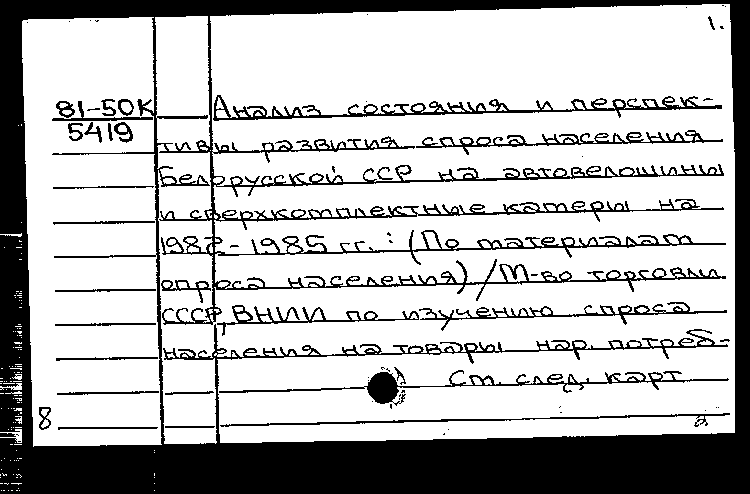 1.
81-50К Анализ состояния и перспек-
5419
тивы развития спроса населения
Белорусской ССР на автовелошины
и сверхкомплектные камеры на
1982-1985 гг. : (По материалам
опроса населения) / М-во торговли
СССР, ВНИИ по изучению спроса
населения на товары нар. потреб-
См. след. карт
8
2